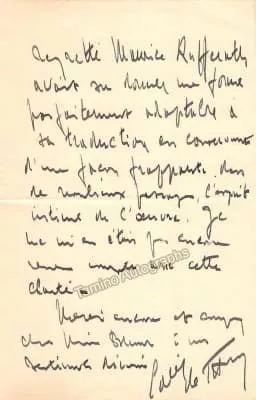 regretté Maurice Kufferath
avait su donner une forme
parfaitement adaptable à
sa traduction en conservant
d'une façon frappante, dans
de nombreux passages, l'esprit
intime de l'œuvre. Je
ne m'en étais pas encore
rendu compte avec cette
clarté.
Tamino Autographs
Merci encore et croyez
cher